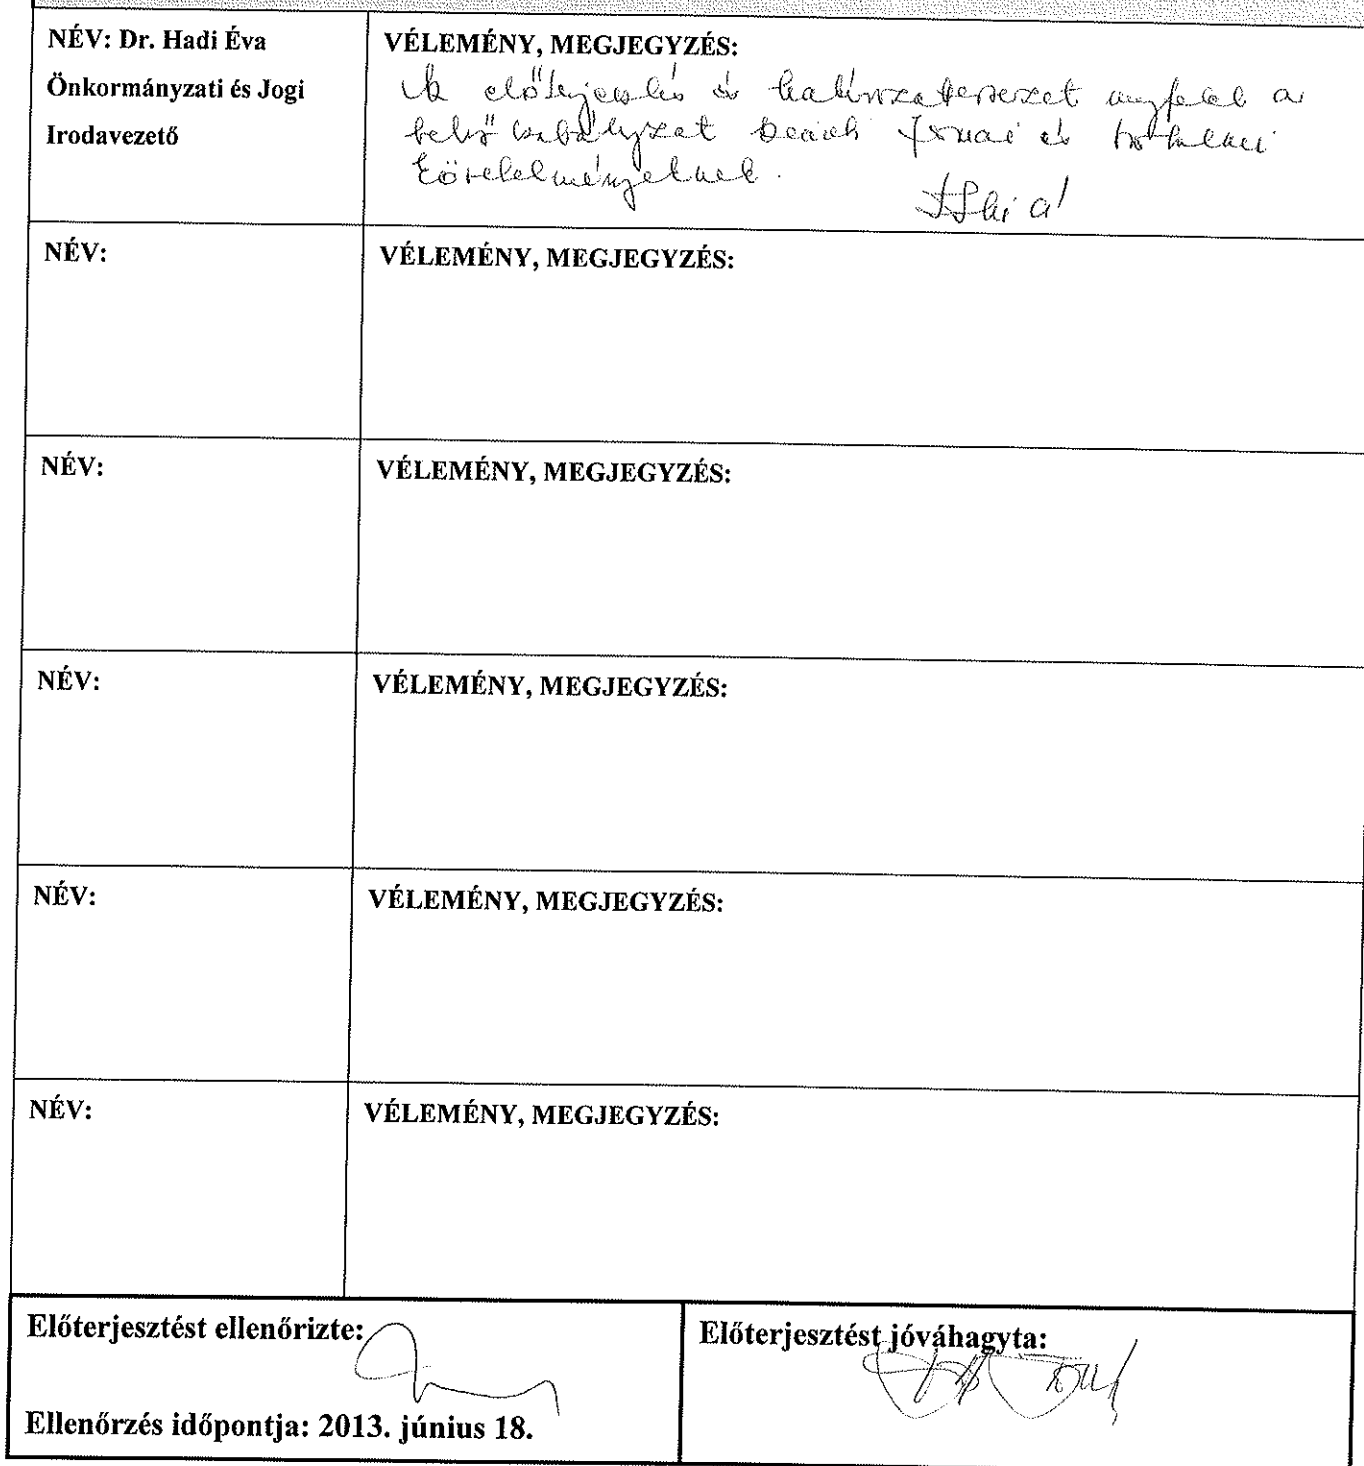 NÉV: Dr. Hadi Éva
Önkormányzati és Jogi
Irodavezető
VÉLEMÉNY, MEGJEGYZÉS:
Az előterjesztés és határozattervezet megfelel a
belső szabályzat szerinti formai és tartalmi
követelményeknek.
NÉV:
VÉLEMÉNY, MEGJEGYZÉS:
NÉV:
VÉLEMÉNY, MEGJEGYZÉS:
NÉV:
VÉLEMÉNY, MEGJEGYZÉS:
NÉV:
VÉLEMÉNY, MEGJEGYZÉS:
NÉV:
VÉLEMÉNY, MEGJEGYZÉS:
Előterjesztést ellenőrizte:
Ellenőrzés időpontja: 2013. június 18.
Előterjesztést jóváhagyta: